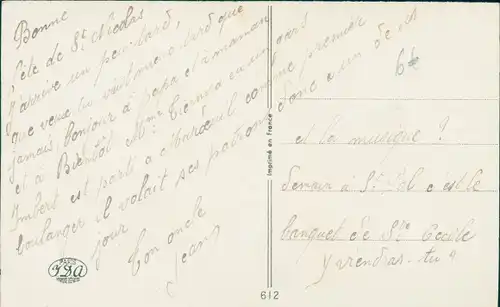 Bonne
fête de St Nicolas
J'arrive un peu tard,
que veux tu vaut mieux tard que
jamais, bonjour à papa et à maman
et à Bientôt. Mme Tiernies en un gars
Imbert est parti à Marœuil comme premier
boulanger il volait ses patrons donc un de
jour
bon oncle
Jean
6
et la musique ?
demain à St Pol c est le
banquet de Ste Cécile
y viendras-tu ?
Imprimé en France
PARIS
JDA
612